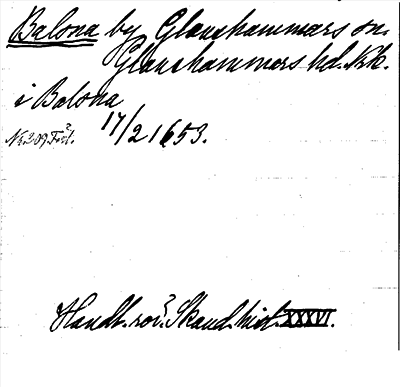 Balsna by Glanshammars sn.
Glanshammars hd. Nk.
i Balsna
17/2 1653.
Handl. rör. Skand. hist. XXXVI.